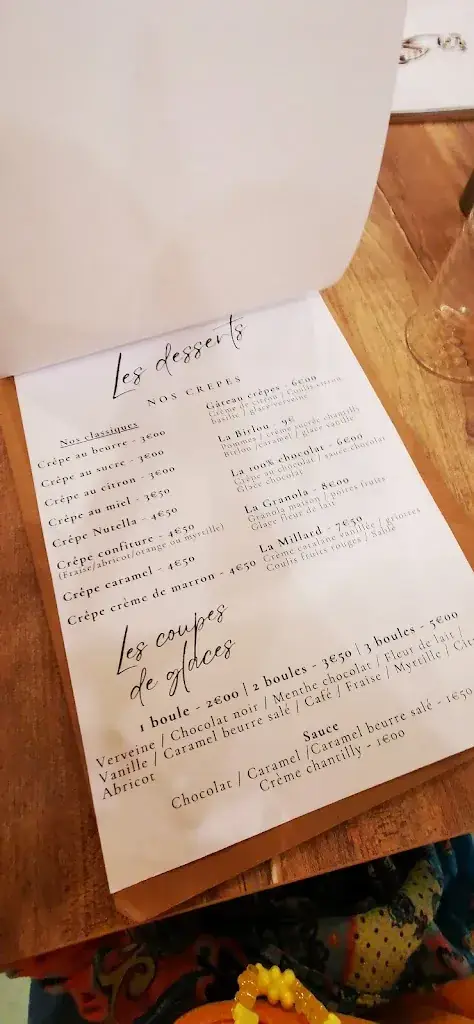 Les desserts
NOS CREPES
Nos classiques
Crêpe au beurre - 3€00
Crêpe au sucre - 3€00
Crêpe au citron - 3€00
Crêpe au miel - 3€50
Crêpe Nutella - 4€50
Crêpe confiture - 4€50
(Fraise/abricot/orange ou myrtille)
Crêpe caramel - 4€50
Crêpe crème de marron - 4€50
Gâteau crêpes - 6€00
Crème de citron / Coulis citron
basilic / glace verveine
La Birlou - 9€
Pommes / crème sucrée chantilly
Birlou /caramel / glace vanille
La 100% chocolat - 6€00
Crêpe au chocolat / sauce chocolat
Glace chocolat
La Granola - 8€00
Granola maison / poires fruits
Glace fleur de lait
La Millard - 7€50
Crème catalane vanillée / griottes
Coulis fruits rouges / Sablé
Les coupes
de glaces
1 boule - 2€00 | 2 boules - 3€50 | 3 boules - 5€00
Verveine / Chocolat noir / Menthe chocolat / Fleur de lait /
Vanille / Caramel beurre salé / Café / Fraise / Myrtille / Cit
Abricot
Sauce
Chocolat / Caramel /Caramel beurre salé - 1€50
Crème chantilly - 1€00